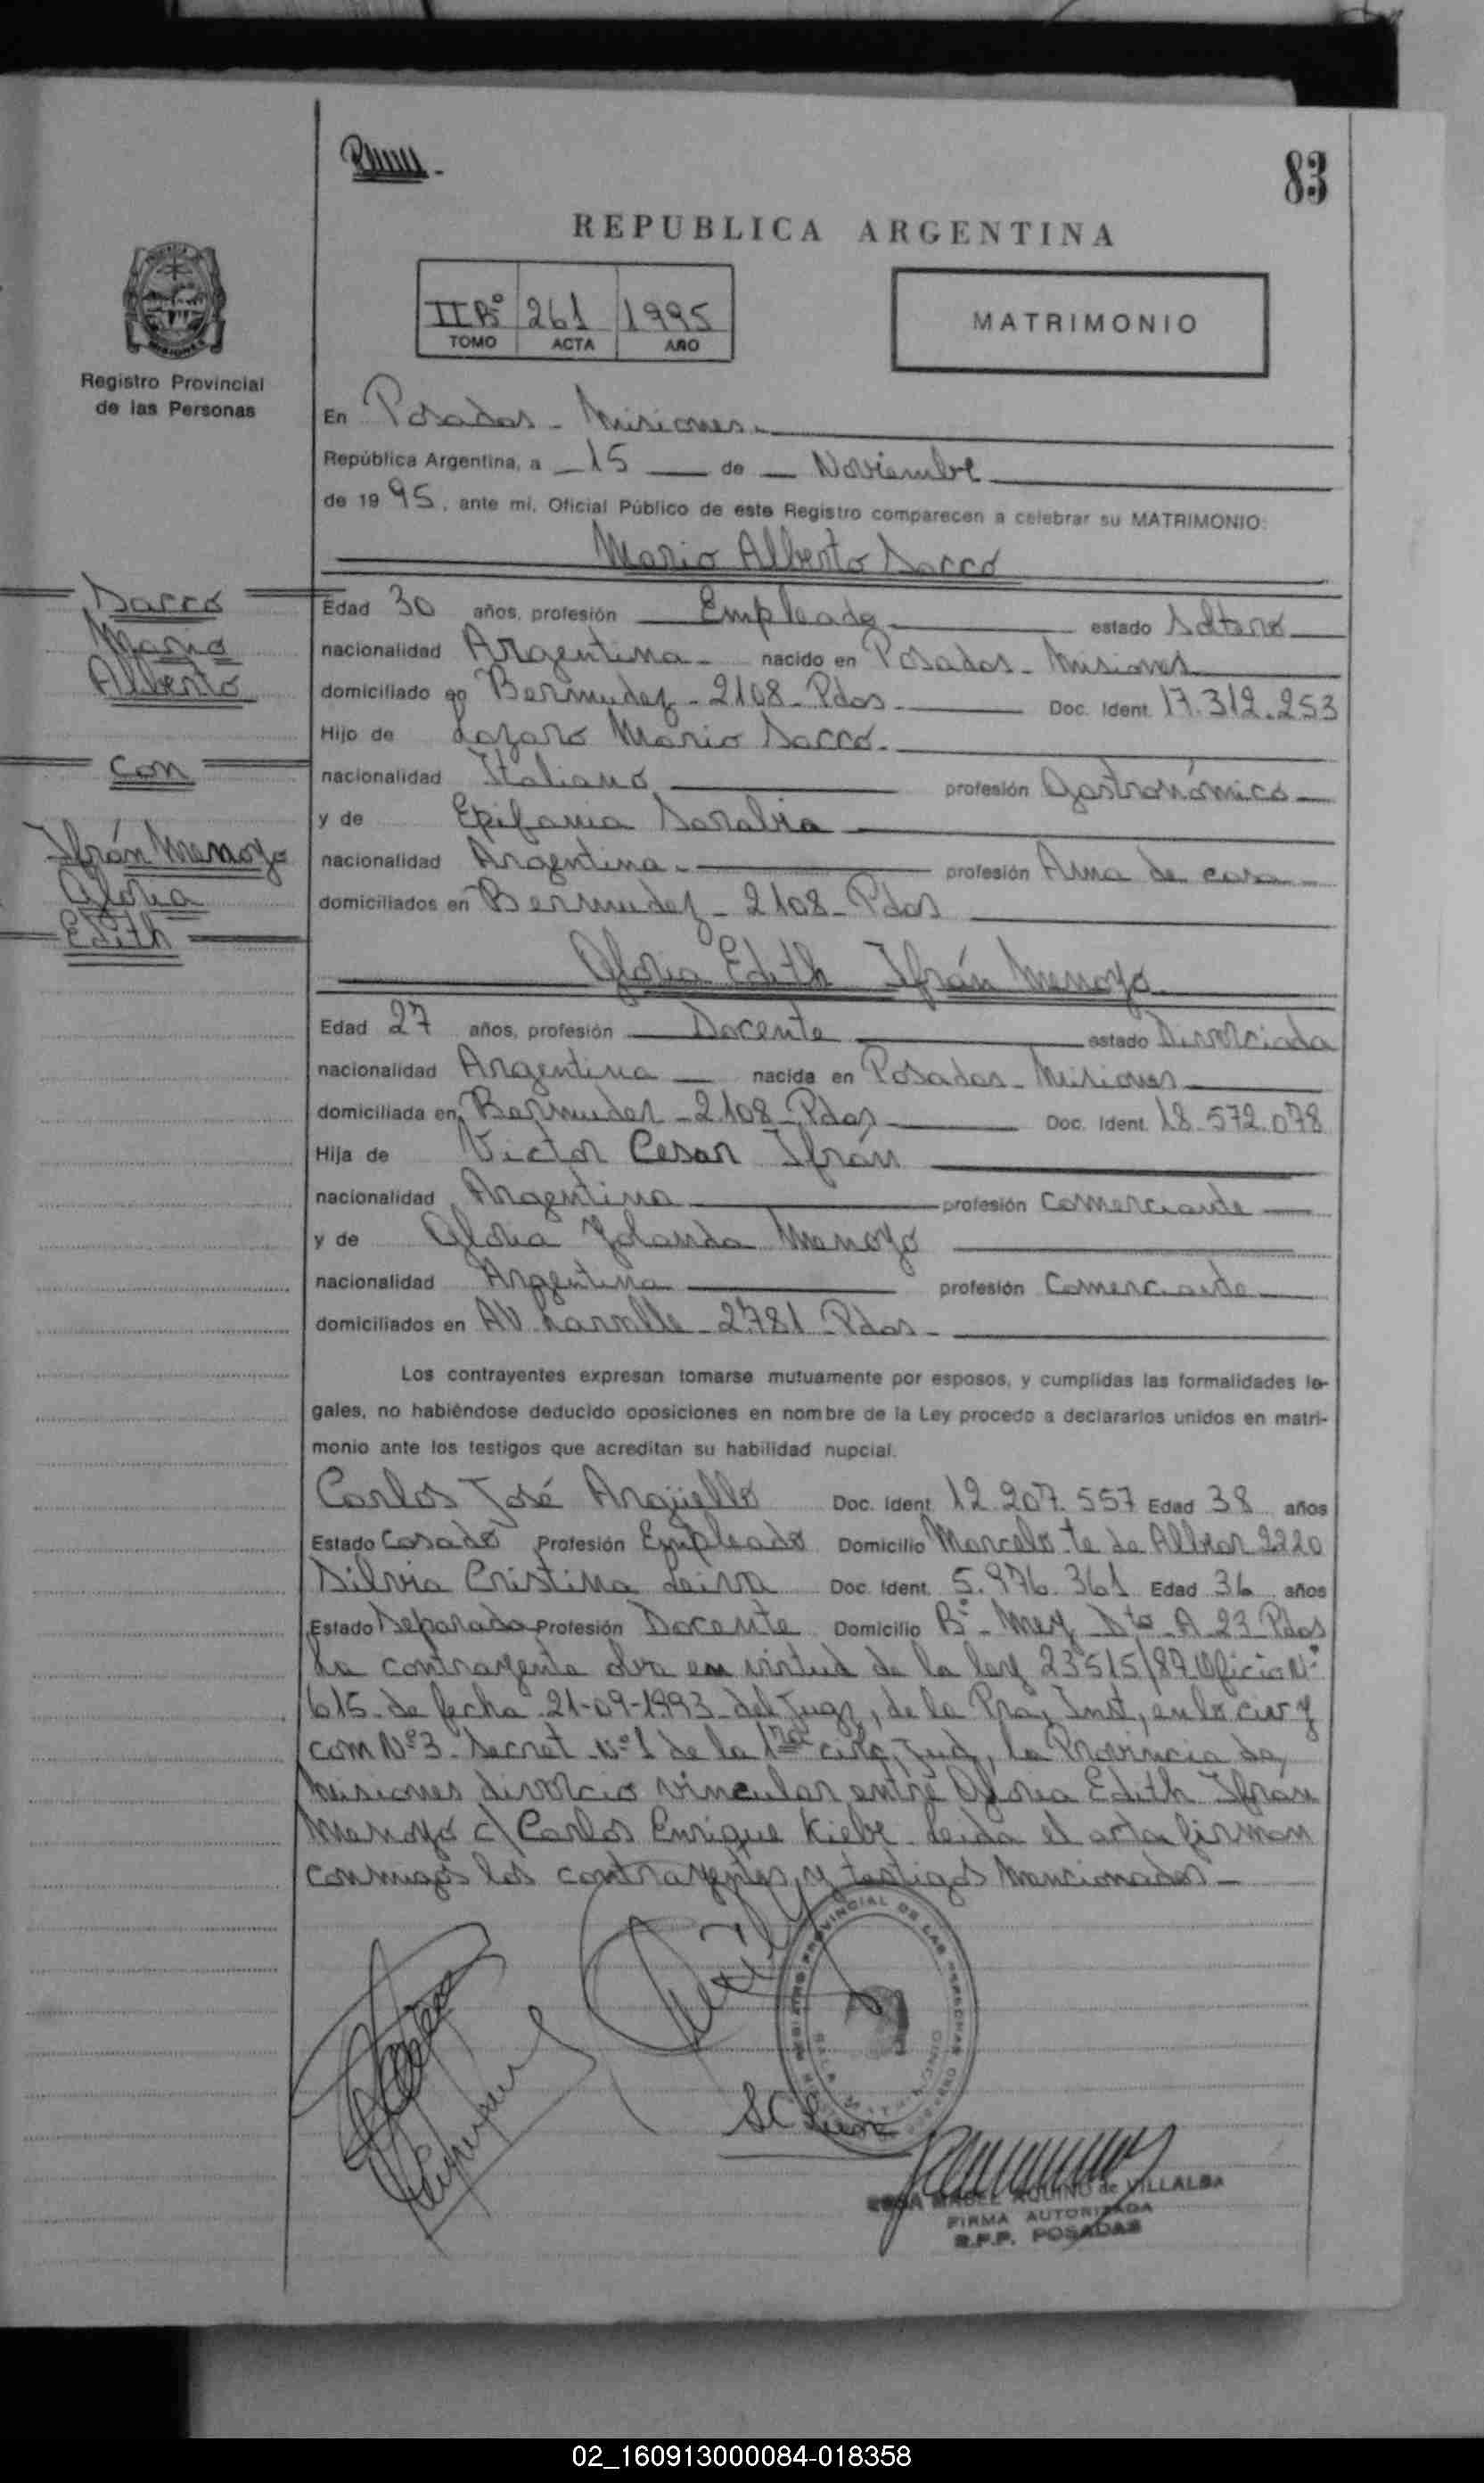 83
REPUBLICA ARGENTINA
MISIONES
Registro Provincial
de las Personas
IIBº 261 1995
TOMO ACTA AÑO
MATRIMONIO
En Posadas - Misiones.
República Argentina, a 15 de Noviembre
de 1995, ante mí, Oficial Público de este Registro comparecen a celebrar su MATRIMONIO:
Mario Alberto Sacco
Sacco
Mario
Alberto
con
Ifrán Menoyo
Gloria
Edith
Edad 30 años, profesión Empleado estado Soltero
nacionalidad Argentina - nacido en Posadas - Misiones
domiciliado en Bermudez - 2108 - Pdas - Doc. Ident. 17.312.253
Hijo de Lazaro Mario Sacco -
nacionalidad Italiano profesión Gastronómico
y de Epifania Sarabia
nacionalidad Argentina - profesión Ama de casa
domiciliados en Bermudez - 2108 - Pdas
Gloria Edith Ifrán Menoyo
Edad 27 años, profesión Docente estado Divorciada
nacionalidad Argentina nacida en Posadas - Misiones
domiciliada en Bermudez - 2108 - Pdas Doc. Ident. 18.572.078
Hija de Victor Cesar Ifrán
nacionalidad Argentina profesión Comerciante
y de Gloria Yolanda Menoyo
nacionalidad Argentina profesión Comerciante
domiciliados en AV. Lavalle - 2781 - Pdas -
Los contrayentes expresan tomarse mutuamente por esposos, y cumplidas las formalidades le-
gales, no habiéndose deducido oposiciones en nombre de la Ley procedo a declararlos unidos en matri-
monio ante los testigos que acreditan su habilidad nupcial.
Carlos José Argüello Doc. Ident. 12.207.557 Edad 38 años
Estado Casado Profesión Empleado Domicilio Marcelo te de Alvear 2220
Silvia Cristina Leiva Doc. Ident. 5.976.361 Edad 36 años
Estado Separada Profesión Docente Domicilio Bº - Dto A 23 Pdas
La contrayente en virtud de la ley 23515/87 Oficio Nº
615 de fecha 21-09-1993 del Juzg, de la Pra, Inst, en lo civ y
com Nº3 Secret Nº1 de la 1ra circ, Jud, la Provincia de
Misiones divorcio vincular entre Gloria Edith Ifran
Menoyo c/ Carlos Enrique Kiebe. Leida el acta firman
conmigo los contrayentes y testigos mencionados -
MABEL AQUINO de VILLALBA
FIRMA AUTORIZADA
R.P.P. POSADAS
02_160913000084-018358